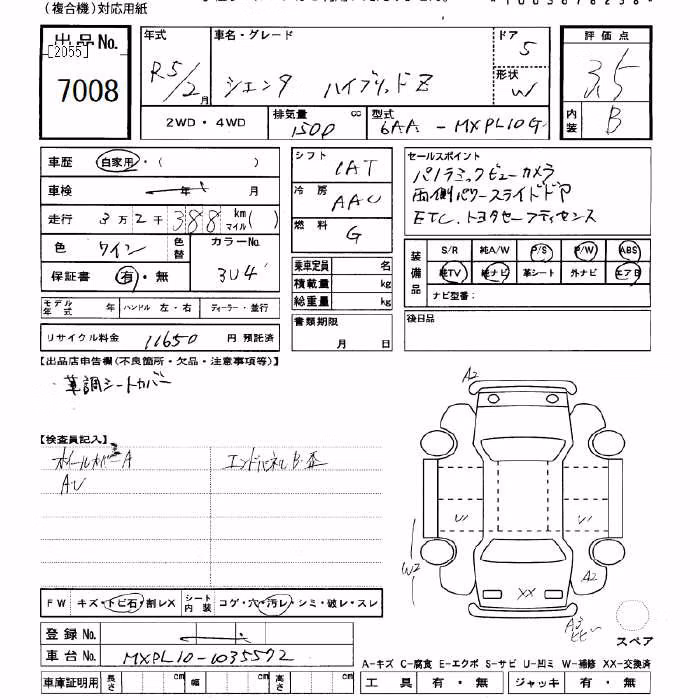 (複合機)対応用紙
出品No.
[2055]
7008
年式 R5/2月
車名・グレード シエンタ ハイブリッドZ
ドア 5
形状 W
評価点 3.5
内装 B
2WD・4WD
排気量 1500 cc
型式 6AA-MXPL10G
車歴 自家用・( )
車検 年 月
走行 3万2千388 km マイル( )
色 ワイン 色替 カラーNo. 3U4
保証書 有・無
モデル年式 年 ハンドル 左・右 ディーラー・並行
リサイクル料金 11650 円 預託済
シフト IAT
冷房 AAC
燃料 G
乗車定員 名
積載量 kg
総重量 kg
書類期限
月 日
セールスポイント
パノラミックビューカメラ
両側パワースライドドア
ETC.トヨタセーフティセンス
装備品
S/R 純A/W P/S P/W ABS
純TV 純ナビ 革シート 外ナビ エアB
ナビ型番:
後日品
【出品店申告欄(不良箇所・欠品・注意事項等)】
・革調シートカバー
【検査員記入】
ホイールカバーA
エンドパネルB・歪
AU
A2
U1
U1
W2
A2
XX
A3
スペア
FW キズ・トビ石・割レX シート内装 コゲ・穴・汚レ・シミ・破レ・スレ
登録No.
車台No. MXPL10-1035572
車庫証明用 長さ cm 幅 cm 高さ cm
A-キズ C-腐食 E-エクボ S-サビ U-凹ミ W-補修 XX-交換済
工具 有・無 ジャッキ 有・無